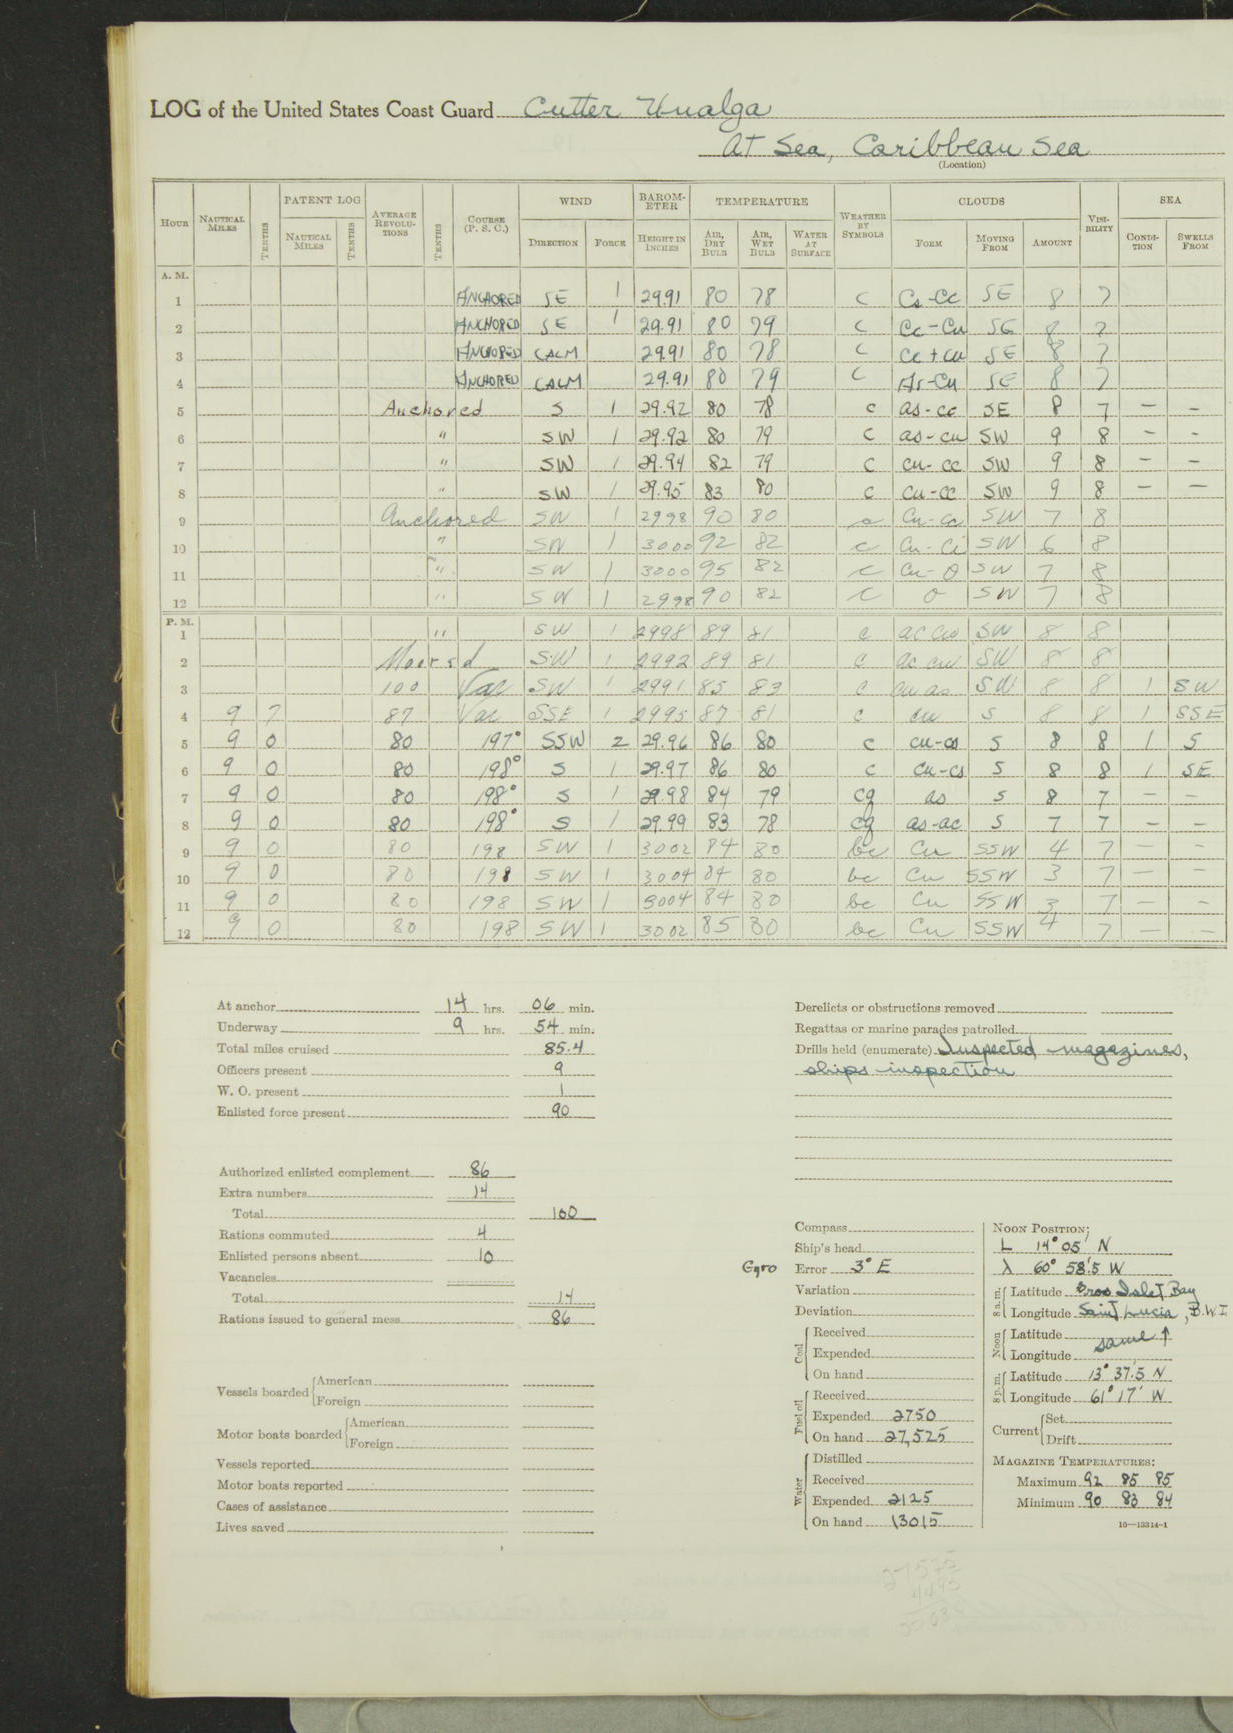 LOG of the United States Coast Guard Cutter Unalga
At Sea, Caribbean Sea
(Location)
HOUR NAUTICAL MILES TENTHS PATENT LOG NAUTICAL MILES TENTHS AVERAGE REVOLUTIONS TENTHS COURSE (P. S. C.) WIND DIRECTION FORCE BAROMETER HEIGHT IN INCHES TEMPERATURE AIR, DRY BULB AIR, WET BULB WATER AT SURFACE WEATHER BY SYMBOLS CLOUDS FORM MOVING FROM AMOUNT VISIBILITY SEA CONDITION SWELLS FROM
A. M.
1 ANCHORED SE 1 29.91 80 78 C Cs-Cc SE 8 7
2 ANCHORED SE 1 29.91 80 79 C Cc-Cu SE 8 7
3 ANCHORED CALM 29.91 80 78 C Cc+Cu SE 8 7
4 ANCHORED CALM 29.91 80 79 C As-Cu SE 8 7
5 Anchored S 1 29.92 80 78 C as-cc SE 8 7 — —
6 " SW 1 29.92 80 79 C as-cu SW 9 8 — —
7 " SW 1 29.94 82 79 C cu-cc SW 9 8 — —
8 " SW 1 29.95 83 80 C cu-cc SW 9 8 — —
9 Anchored SW 1 2998 90 80 c Cu-cc SW 7 8
10 " SW 1 3000 92 82 c Cu-Ci SW 6 8
11 " SW 1 3000 95 82 c Cu-O SW 7 8
12 " SW 1 2998 90 82 c O SW 7 8
P. M.
1 " SW 1 2998 89 81 c ac cu SW 8 8
2 Moored SW 1 2992 89 81 c ac cu SW 8 8
3 100 Var SW 1 2991 85 83 c cu as SW 8 8 1 SW
4 9 7 87 Var SSE 1 2995 87 81 c cu S 8 8 1 SSE
5 9 0 80 197° SSW 2 29.96 86 80 c cu-cs S 8 8 1 S
6 9 0 80 198° S 1 29.97 86 80 c cu-cs S 8 8 1 SE
7 9 0 80 198° S 1 29.98 84 79 cq as S 8 7 — —
8 9 0 80 198° S 1 29.99 83 78 cq as-ac S 7 7 — —
9 9 0 80 198 SW 1 3002 84 80 bc Cu SSW 4 7 — —
10 9 0 80 198 SW 1 3004 84 80 bc Cu SSW 3 7 — —
11 9 0 80 198 SW 1 3004 84 80 bc Cu SSW 3 7 — —
12 9 0 80 198 SW 1 3002 85 80 bc Cu SSW 4 7 — —
At anchor 14 hrs. 06 min.
Underway 9 hrs. 54 min.
Total miles cruised 85.4
Officers present 9
W. O. present 1
Enlisted force present 90
Authorized enlisted complement 86
Extra numbers 14
Total 100
Rations commuted 4
Enlisted persons absent 10
Vacancies
Total 14
Rations issued to general mess 86
Vessels boarded American
Foreign
Motor boats boarded American
Foreign
Vessels reported
Motor boats reported
Cases of assistance
Lives saved
Derelicts or obstructions removed
Regattas or marine parades patrolled
Drills held (enumerate) Inspected magazines,
ships inspection
Compass
Ship's head
Gyro Error 3° E
Variation
Deviation
Coal Received
Expended
On hand
Fuel oil Received
Expended 2750
On hand 27,525
Water Distilled
Received
Expended 2125
On hand 13015
NOON POSITION:
L 14° 05' N
λ 60° 58'.5 W
8 a. m. Latitude Gros Islet Bay
Longitude Saint Lucia, B.W.I
Noon Latitude same ↑
Longitude
8 p. m. Latitude 13° 37'.5 N
Longitude 61° 17' W
Current Set
Drift
MAGAZINE TEMPERATURES:
Maximum 92 85 85
Minimum 90 83 84
16—13314-1